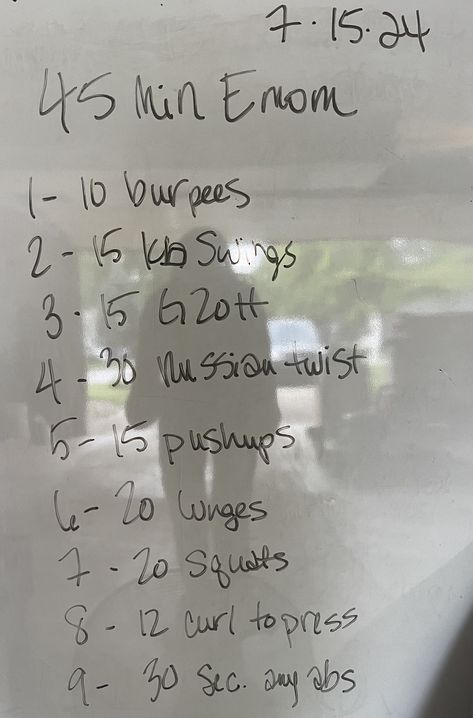 7.15.24
45 Min Emom
1- 10 burpees
2- 15 kb Swings
3- 15 G2OH
4- 30 Russian twist
5- 15 pushups
6- 20 lunges
7- 20 Squats
8- 12 curl to press
9- 30 Sec. any abs